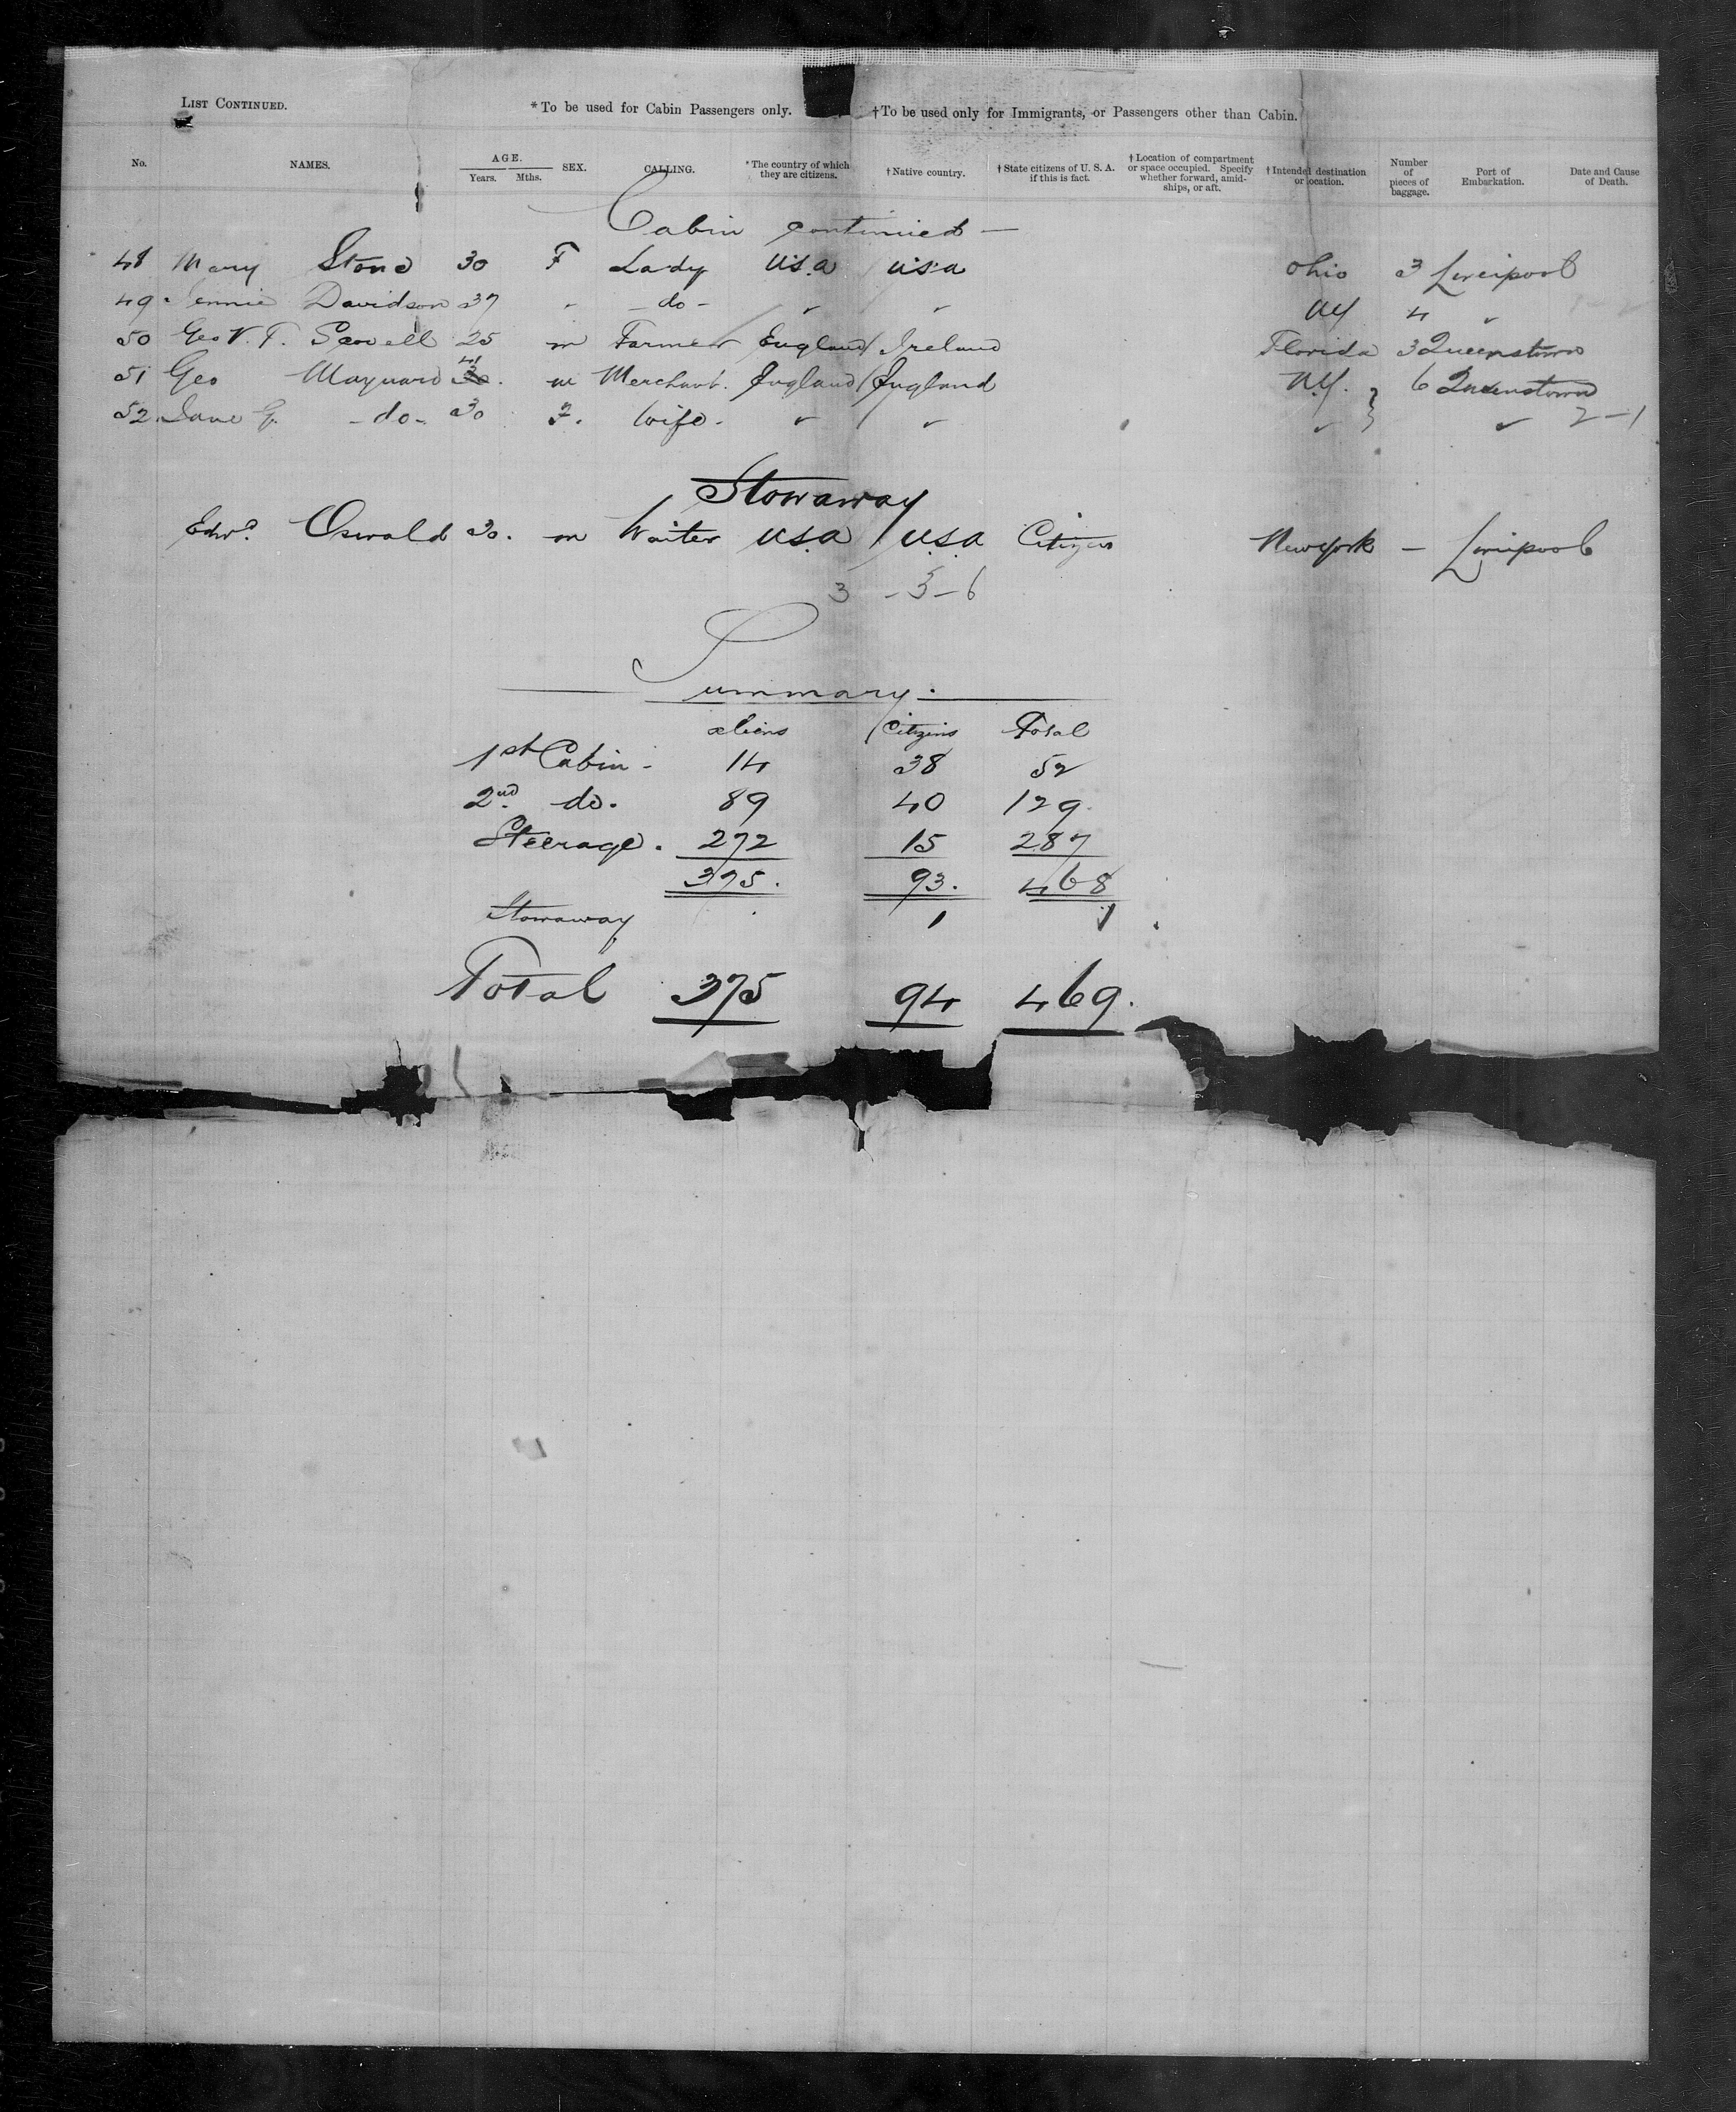 LIST CONTINUED. *To be used for Cabin Passengers only. †To be used only for Immigrants, or Passengers other than Cabin.
No. NAMES. AGE. Years. Mths. SEX. CALLING. *The country of which they are citizens. †Native country. †State citizens of U. S. A. if this is fact. †Location of compartment or space occupied. Specify whether forward, amidships, or aft. †Intended destination or location. Number of pieces of baggage. Port of Embarkation. Date and Cause of Death.
Cabin continued —
48 Mary Stone 30 F Lady U.S.A / U.S.A Ohio 3 Liverpool
49 Jennie Davidson 37 " - do - " " NY 4 "
50 Geo V. T. 25 m Farmer England / Ireland Florida 3 Queenstown
51 Geo Maynard 41 m Merchant. England / England N.Y. 6 Queenstown
52 Jane G. - do - 30 F. Wife - " / " " " 2 - 1
Stowaway
Edwd. Oswald 30. m Waiter U.S.A / U.S.A Citizen New York — Liverpool
3 - 3 - 6
Summary.
aliens Citizens Total
1st Cabin - 14 38 52
2nd. do. 89 40 129.
Steerage. 272 15 287
375. 93. 468
Stowaway . 1 1
Total 375 94 469.